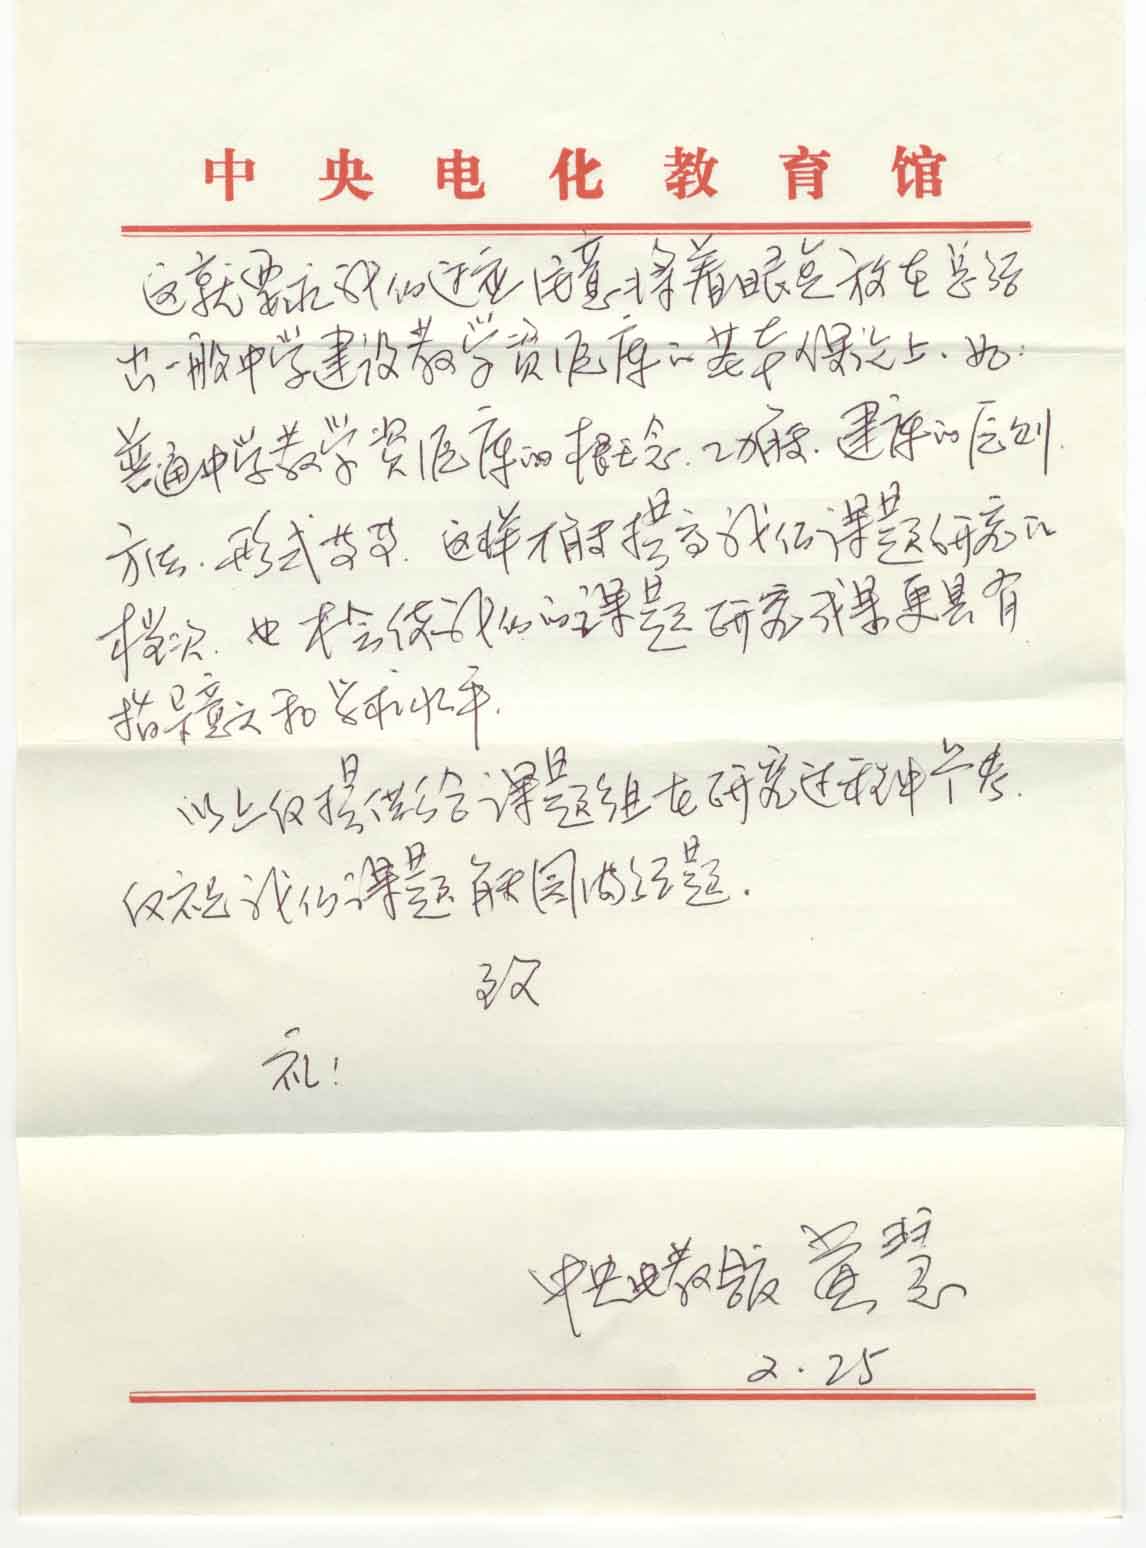 中央电化教育馆
这就要求我们还应注意将着眼点放在总结
出一般中学建设教学资源库的基本理论上、如:
普通中学教学资源库的概念、功能、建库的原则、
方法、形式等等. 这样才能提高我们课题研究的
档次. 也才会使我们的课题研究成果更具有
指导意义和学术水平.
以上仅提供给课题组在研究过程中参考.
仅祝我们课题能圆满结题.
致
礼!
中央电教馆 黄慧
2.25